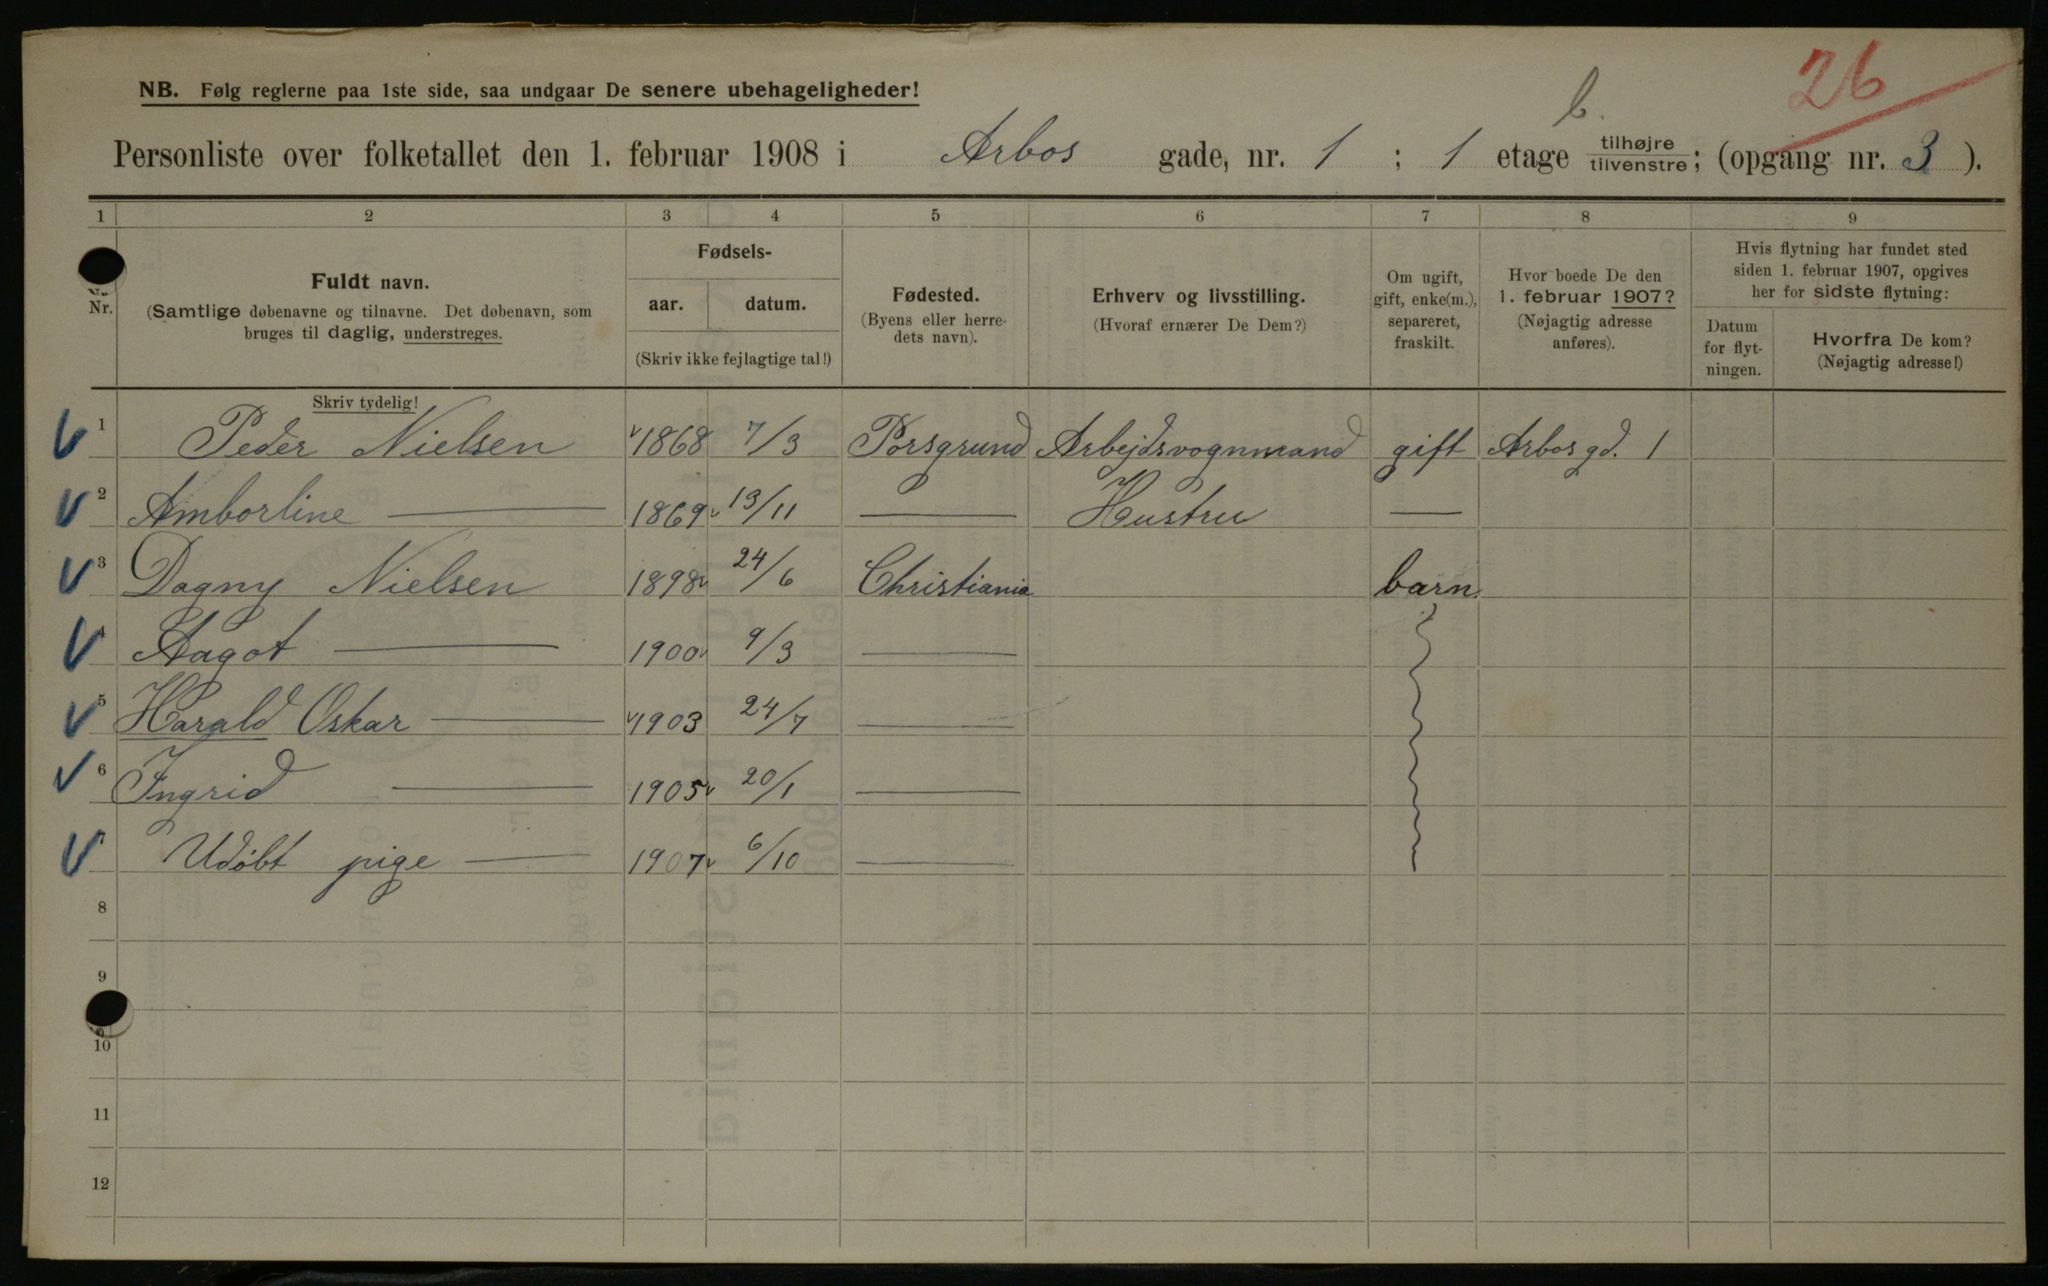 26
NB. Følg reglerne paa 1ste side, saa undgaar De senere ubehageligheder!
b.
Personliste over folketallet den 1. februar 1908 i Arbos gade, nr. 1 ; 1 etage tilhøjre/tilvenstre; (opgang nr. 3 ).
1 2 3 4 5 6 7 8 9
Nr. Fuldt navn. (Samtlige døbenavne og tilnavne. Det døbenavn, som bruges til daglig, understreges.
Fødsels- aar. datum. (Skriv ikke fejlagtige tal!)
Fødested. (Byens eller herredets navn).
Erhverv og livsstilling. (Hvoraf ernærer De Dem?)
Om ugift, gift, enke(m.), separeret, fraskilt.
Hvor boede De den 1. februar 1907? (Nøjagtig adresse anføres).
Hvis flytning har fundet sted siden 1. februar 1907, opgives her for sidste flytning:
Datum for flytningen.
Hvorfra De kom? (Nøjagtig adresse!)
Skriv tydelig!
1 Peder Nielsen 1868 7/3 Porsgrund Arbejdsvognmand gift Arbosgd. 1
2 Amborline — 1869 13/11 — Hustru —
3 Dagny Nielsen 1898 24/6 Christiania barn
4 Aagot — 1900 9/3 —
5 Harald Oskar — 1903 24/7 —
6 Ingrid — 1905 20/1 —
7 Udøbt pige — 1907 6/10 —
8
9
10
11
12